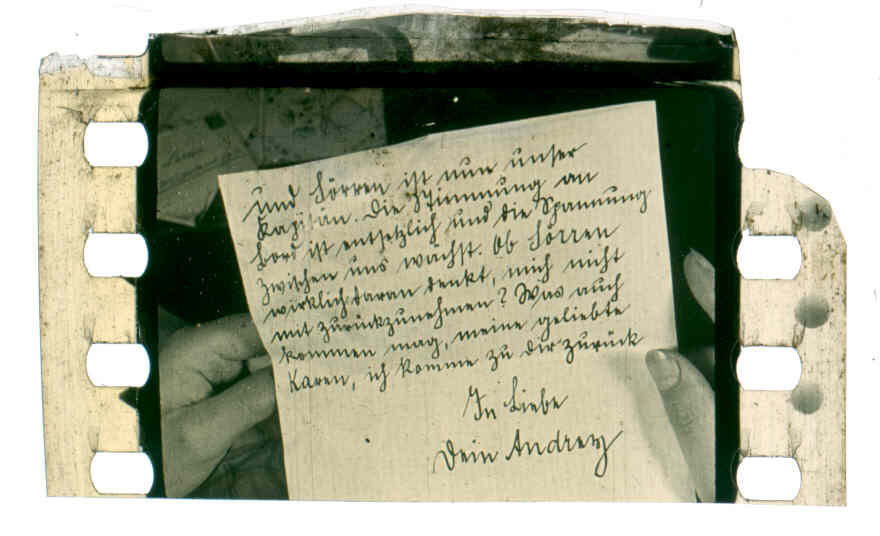 und Lörren ist nun unser
Kapitän. Die Stimmung an
Bord ist entsetzlich und die Spannung
zwischen uns wächst. Ob Lörren
wirklich daran denkt, mich nicht
mit zurückzunehmen? Was auch
kommen mag, meine geliebte
Karen, ich komme zu dir zurück
In Liebe
Dein Andrey